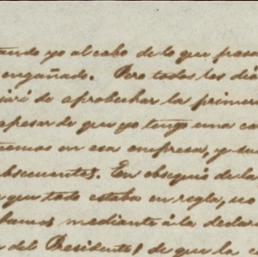 ando yo al cabo de lo que pasa
engañado. Pero todos los dia
juré de aprobechar la primera
apesar de que yo tengo una ca
emos en esa empresa, y
bsecuentes. En obsequio de la
que todo estaba en regla, no
bamos mediante á la declar
del Presidente, de que la